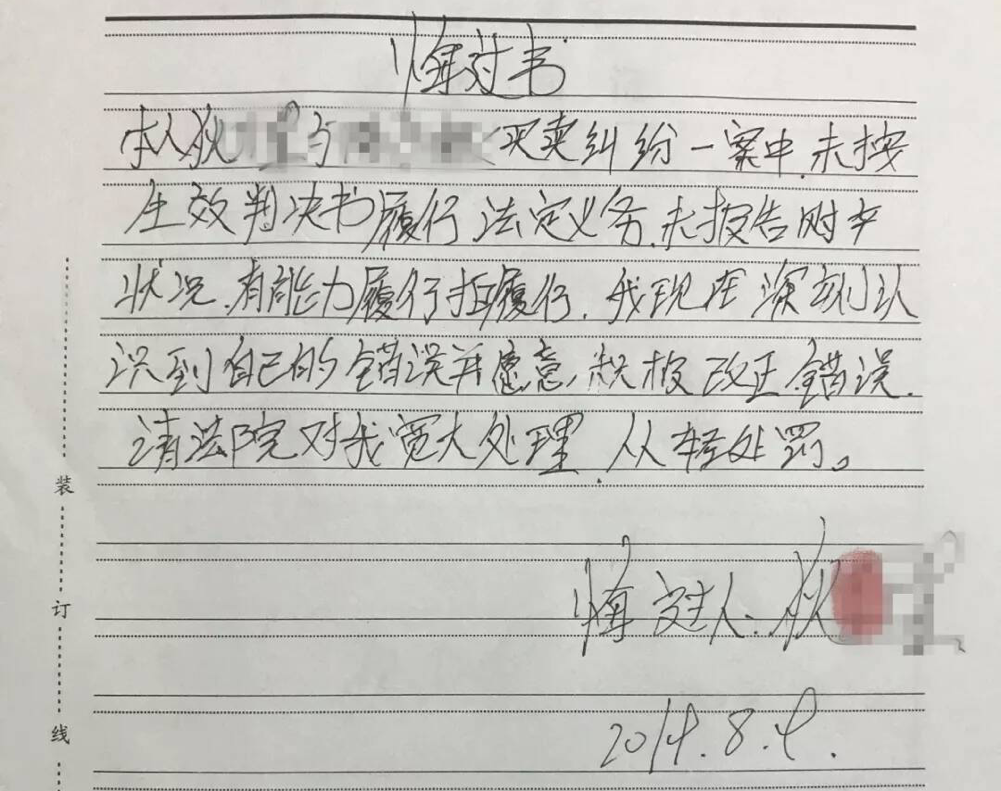 悔过书
本人狄 与 买卖纠纷一案中,未按
生效判决书履行法定义务,未报告财产
状况,有能力履行拒履行,我现在深刻认
识到自己的错误并愿意,积极改正错误.
请法院对我宽大处理,从轻处罚。
悔过人:狄
2019.8.9.
装
订
线